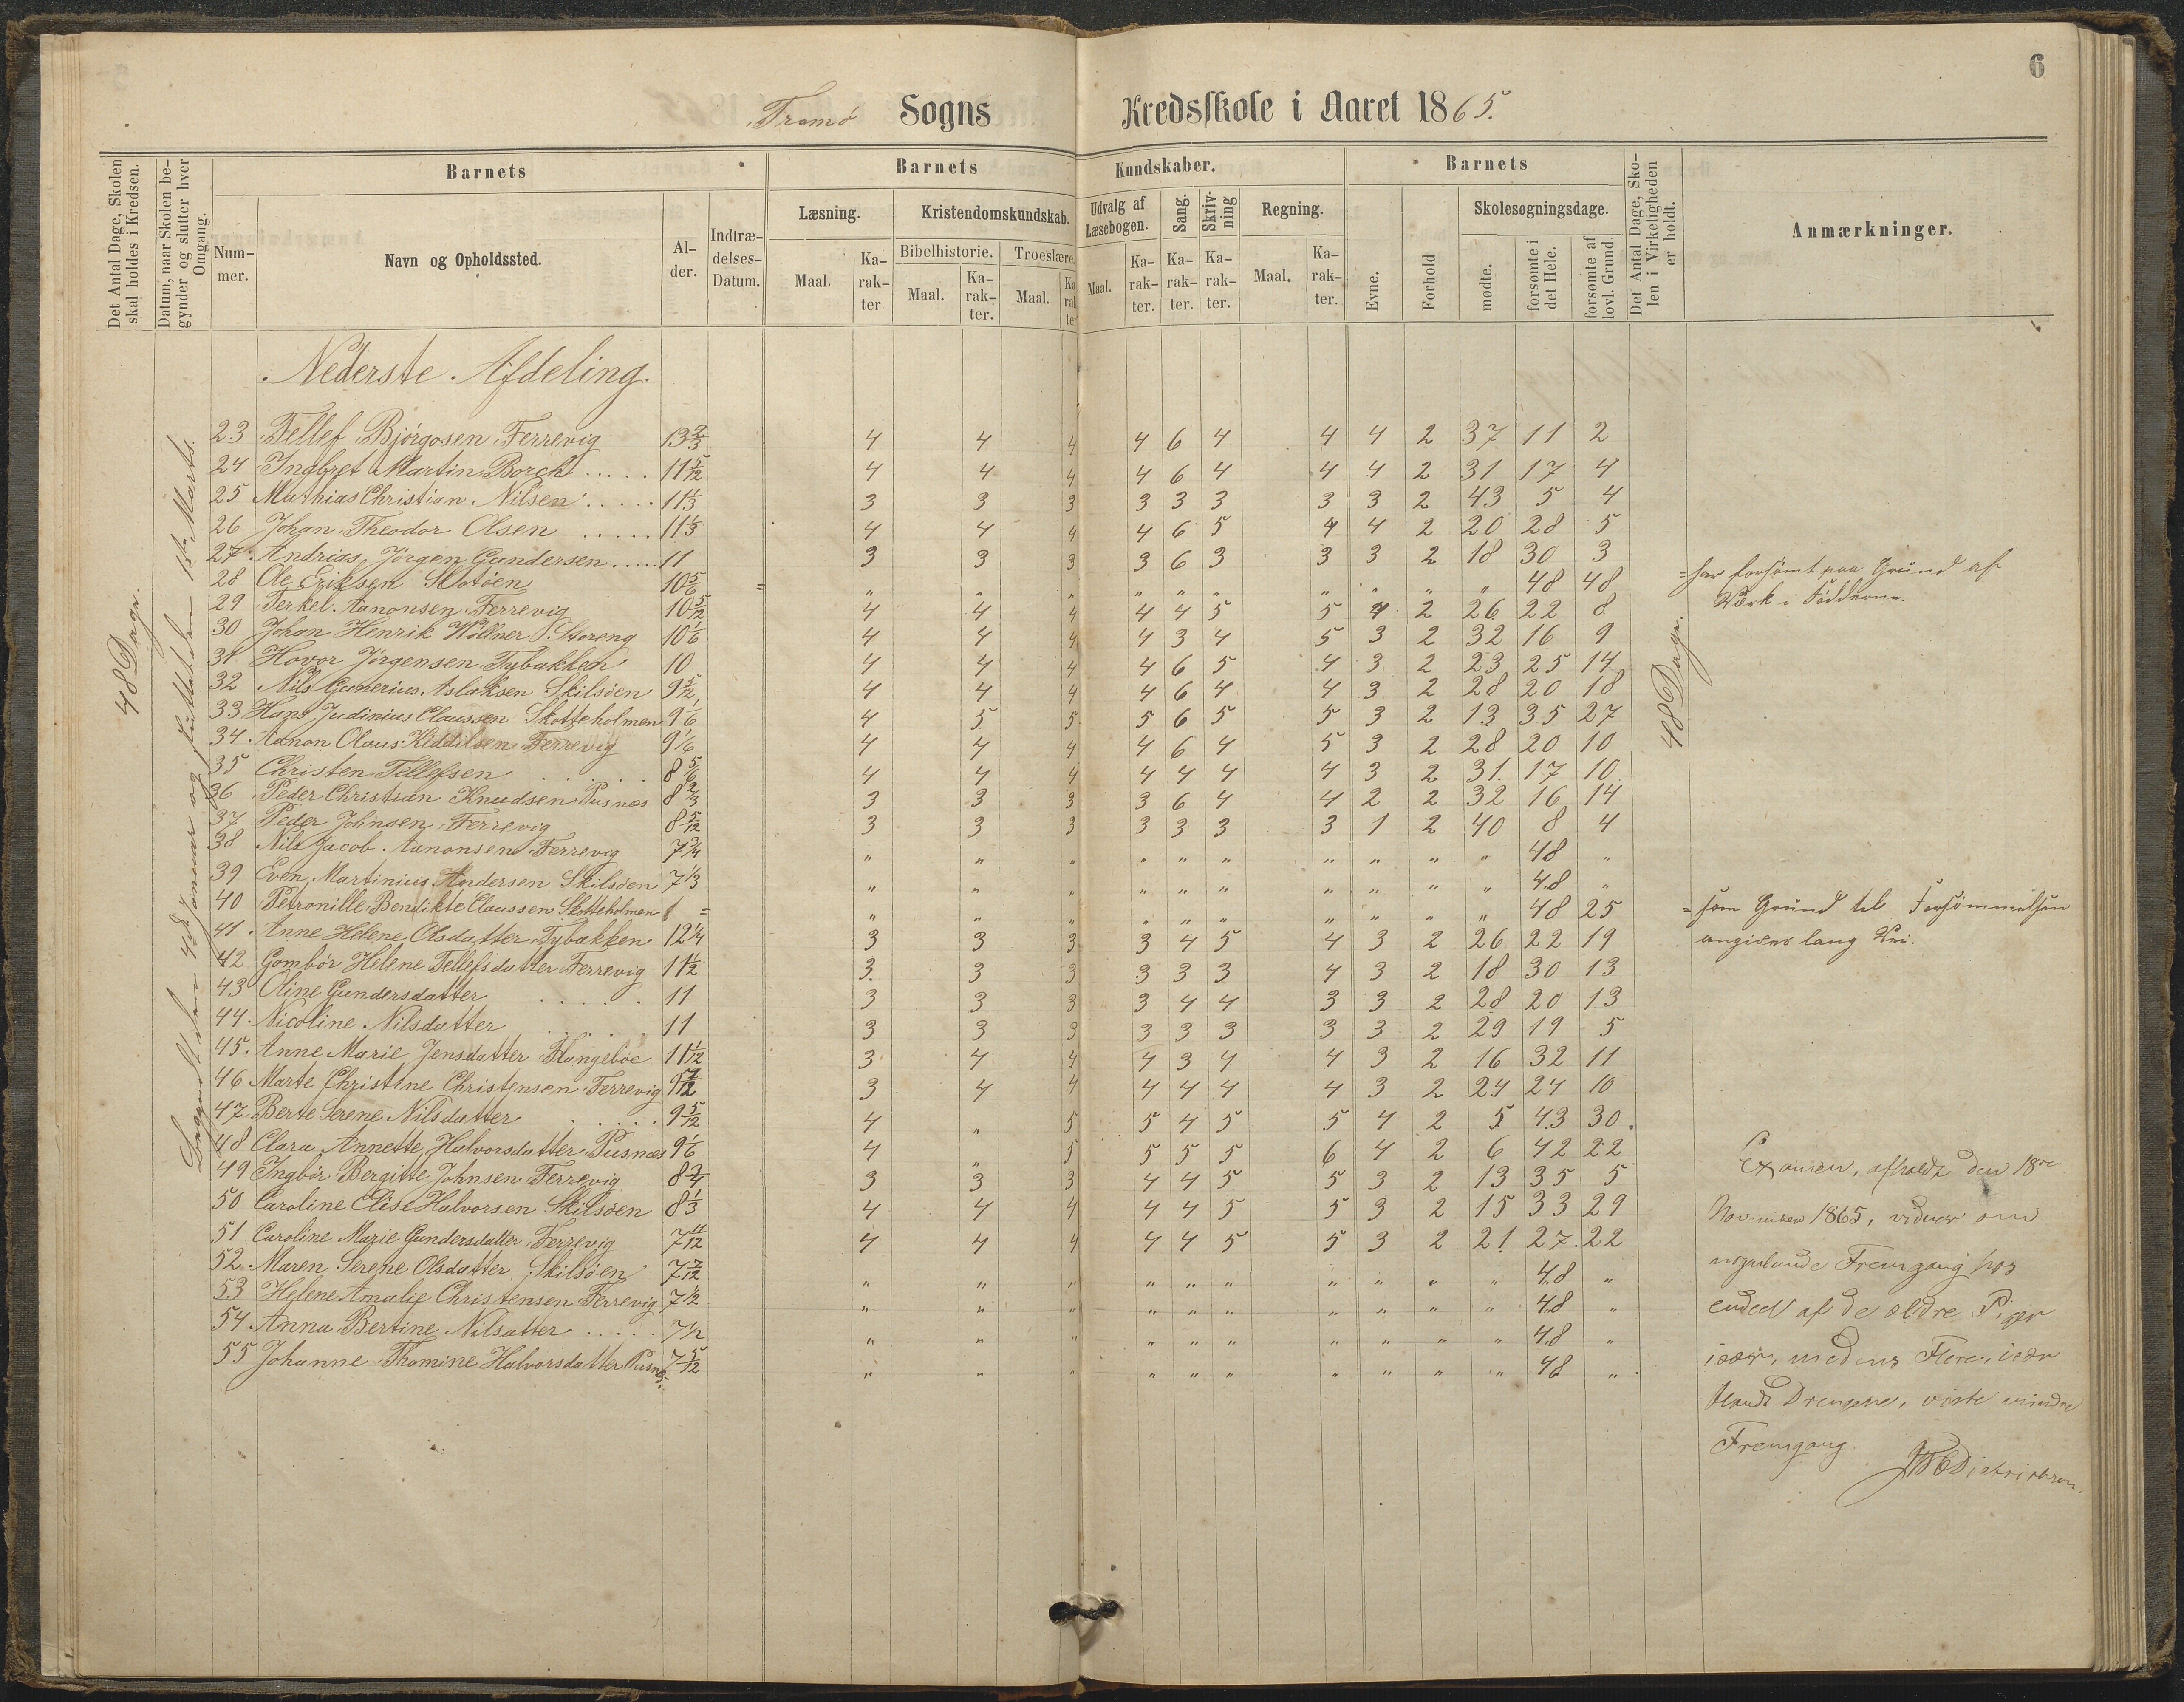 6
Tromö Sogns Kredsskole i Aaret 1865.
Det Antal Dage, Skolen skal holdes i Kredsen.
Datum, naar Skolen begynder og slutter hver Omgang.
Barnets
Barnets Kundskaber.
Barnets
Det Antal Dage, Skolen i Virkeligheden er holdt.
Anmærkninger.
Nummer.
Navn og Opholdssted.
Alder.
Indtrædelses-Datum.
Læsning.
Kristendomskundskab.
Udvalg af Læsebogen.
Sang.
Skrivning
Regning.
Evne.
Forhold
Skolesøgningsdage.
Bibelhistorie.
Troeslære.
Maal.
Karakter
Maal.
Karakter.
Maal.
Karakter
Maal.
Karakter.
Karakter.
Karakter.
Maal.
Karakter.
mødte.
forsømte i det Hele.
forsømte af lovl. Grund.
48 Dage.
Begyndt den 4de Januar og sluttet den 1ste Marts.
48 Dage.
Nederste Afdeling.
23 Tellef Bjørgosen Ferrevig 13 2/3 4 4 4 4 6 4 4 4 2 37 11 2
24 Ingbret Martin Borch ..... 11 5/12 4 4 4 4 6 4 4 4 2 31 17 4
25 Mathias Christian Nilsen ..... 11 1/3 3 3 3 3 3 3 3 3 2 43 5 4
26 Johan Theodor Olsen ..... 11 1/3 4 4 4 4 6 5 4 4 2 20 28 5
27 Andrias Jørgen Gundersen ..... 11 3 3 3 3 6 3 3 3 2 18 30 3
28 Ole Eriksen Slotöen 10 5/6 = " " " " " " " " " " 48 48
29 Terkel Aanonsen Ferrevig 10 5/12 4 4 4 4 4 5 5 4 2 26 22 8
30 Johan Henrik Wöllner P. Storeng 10 1/6 4 4 4 4 3 4 5 3 2 32 16 9
31 Hovor Jørgensen Tybakken 10 4 4 4 4 6 5 4 3 2 23 25 14
32 Nils Gunerius Aslaksen Skilsöen 9 5/12 4 4 4 4 6 4 4 3 2 28 20 18
33 Hans Judinius Claussen Skotteholmen 9 1/6 4 5 5 5 6 5 5 3 2 13 35 27
34 Aanon Olaus Kiddilsen Ferrevig 9 1/6 4 4 4 4 6 4 5 3 2 28 20 10
35 Christen Tellefsen ..... 8 5/6 4 4 4 4 4 4 4 3 2 31 17 10
36 Peder Christian Knudsen Pusnæs 8 2/3 3 3 3 3 6 4 4 2 2 32 16 14
37 Peder Johnsen Ferrevig 8 5/12 3 3 3 3 3 3 3 1 2 40 8 4
38 Nils Jacob Aanonsen Ferrevig 7 3/4 " " " " " " " " " " 48 "
39 Even Martinius Andersen Skilsöen 7 1/3 " " " " " " " " " " 48 "
40 Petronille Bendikte Claussen Skotteholmen = " " " " " " " " " " 48 25
41 Anne Helene Olsdatter Tybakken 12 1/4 3 3 3 3 4 5 4 3 2 26 22 19
42 Gombör Helene Tellefsdatter Ferrevig 11 1/2 3 3 3 3 3 3 4 3 2 18 30 13
43 Oline Gundersdatter ..... 11 3 3 3 3 4 4 3 3 2 28 20 13
44 Nicoline Nilsdatter ..... 11 3 3 3 3 3 3 3 3 2 29 19 5
45 Anne Marie Jensdatter Flangeböe 11 1/12 3 4 4 4 3 4 4 3 2 16 32 11
46 Marte Christine Christensen Ferrevig 3 4 4 4 4 4 4 3 2 24 24 10
47 Berte Serene Nilsdatter ..... 9 5/12 4 " 5 5 4 5 5 4 2 5 43 30
48 Clara Annette Halvorsdatter Pusnæs 9 1/6 4 " 5 5 5 5 6 4 2 6 42 22
49 Ingbör Bergitte Johnsen Ferrevig 8 3/4 3 3 3 4 4 5 5 3 2 13 35 5
50 Caroline Elise Halvorsen Skilsöen 8 1/3 4 4 4 4 4 5 5 3 2 15 33 29
51 Caroline Marie Gundersdatter Ferrevig 7 11/12 4 4 4 4 4 5 5 3 2 21 27 22
52 Maren Serene Olsdatter Skilsöen 7 7/12 " " " " " " " " " " 48 "
53 Helene Amalie Christensen Ferrevig 7 1/2 " " " " " " " " " " 48 "
54 Anna Bertine Nilsatter ..... 7 1/2 " " " " " " " " " " 48 "
55 Johanne Thomine Halvorsdatter Pusnæs 7 5/12 " " " " " " " " " " 48 "
= har forsömt paa Grund af
Værk i Födderne.
= som Grund til Forsömmelsen
angives lang Vei.
Examen, afholdt den 18de
November 1865, vidner om
Fremgang hos
endeel af de ældre Piger
især, medens Flere, især
blandt Drengene, viste mindre
Fremgang